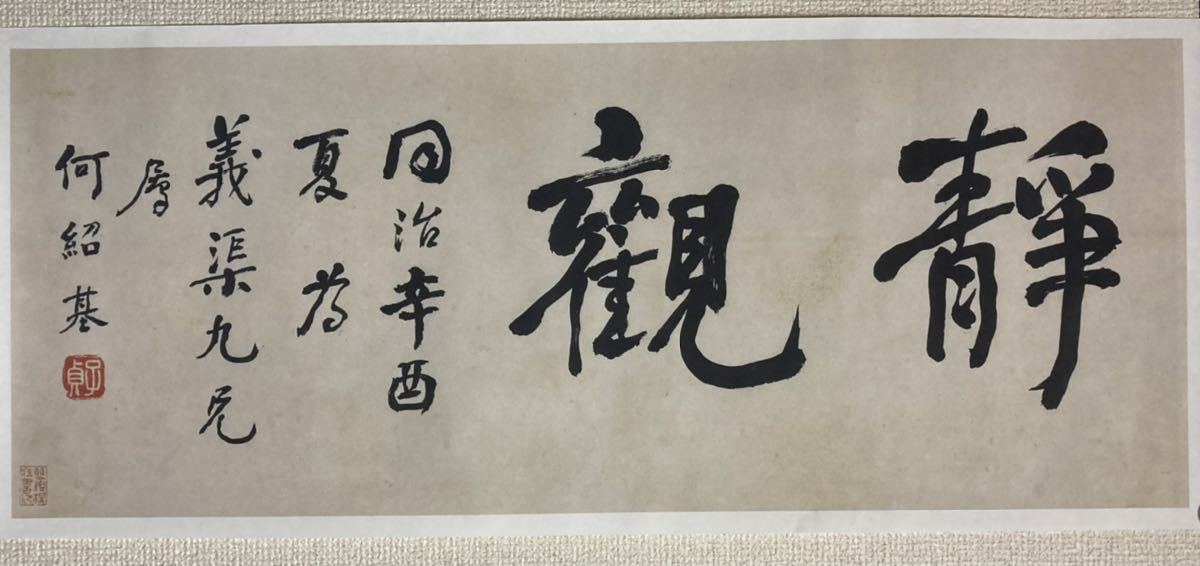 靜觀
同治辛酉
夏為
義渠九兄
屬
何紹基
子貞